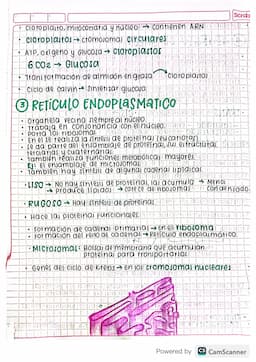 • Cloroplasto, mitocondria y núcleo → contienen ARN
• Cloroplastos → Cromosomas circulares
• ATP, oxigeno y glucosa → Cloroplastos
6 CO2 → Glucosa
• Transformación de almidón en glucosa → cloroplastos
• Ciclo de Calvin → sintetizar glucosa
③ RETÍCULO ENDOPLASMATICO
• Organela vecina siempre al núcleo.
• Trabaja en consonancia con el núcleo.
• Porta los ribosomas
• En él se realiza la síntesis de proteínas (eucariotas)
terciarias y cuaternarias.
• También realiza funciones metabólicas mayores.
Ej: el ensamblaje de microsomas.
• También hay síntesis de algunas cadenas lipídicas.
• LISO → No hay síntesis de proteínas, las acumula
→ produce lípidos → carece de ribosomas
• RUGOSO → Hay síntesis de proteínas
• Hace las proteínas funcionales.
• Formación de cadenas primarias → en el ribosoma
• Formación del resto de cadenas → Retículo endoplasmático.
• MICROSOMAS: Bolsas de membrana que acumulan
proteínas para transportarlas
• Genes del ciclo de Krebs → en los cromosomas nucleares
Powered by CS CamScanner